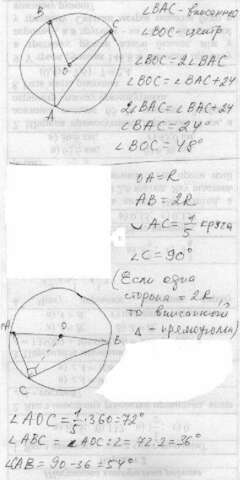 B
C
O
A
∠BAC - вписанно
∠BOC - центр
∠BOC = 2∠BAC
∠BOC = ∠BAC + 24
2∠BAC = ∠BAC + 24
∠BAC = 24°
∠BOC = 48°
OA = R
AB = 2R
◡ AC = 1/5 круга
∠C = 90°
(Если одна
сторона = 2R,
то вписанного
Δ - прямоуголн)
A
O
B
C
∠AOC = 1/5 · 360 = 72°
∠ABC = ∠AOC : 2 = 72 : 2 = 36°
∠CAB = 90 - 36 = 54°